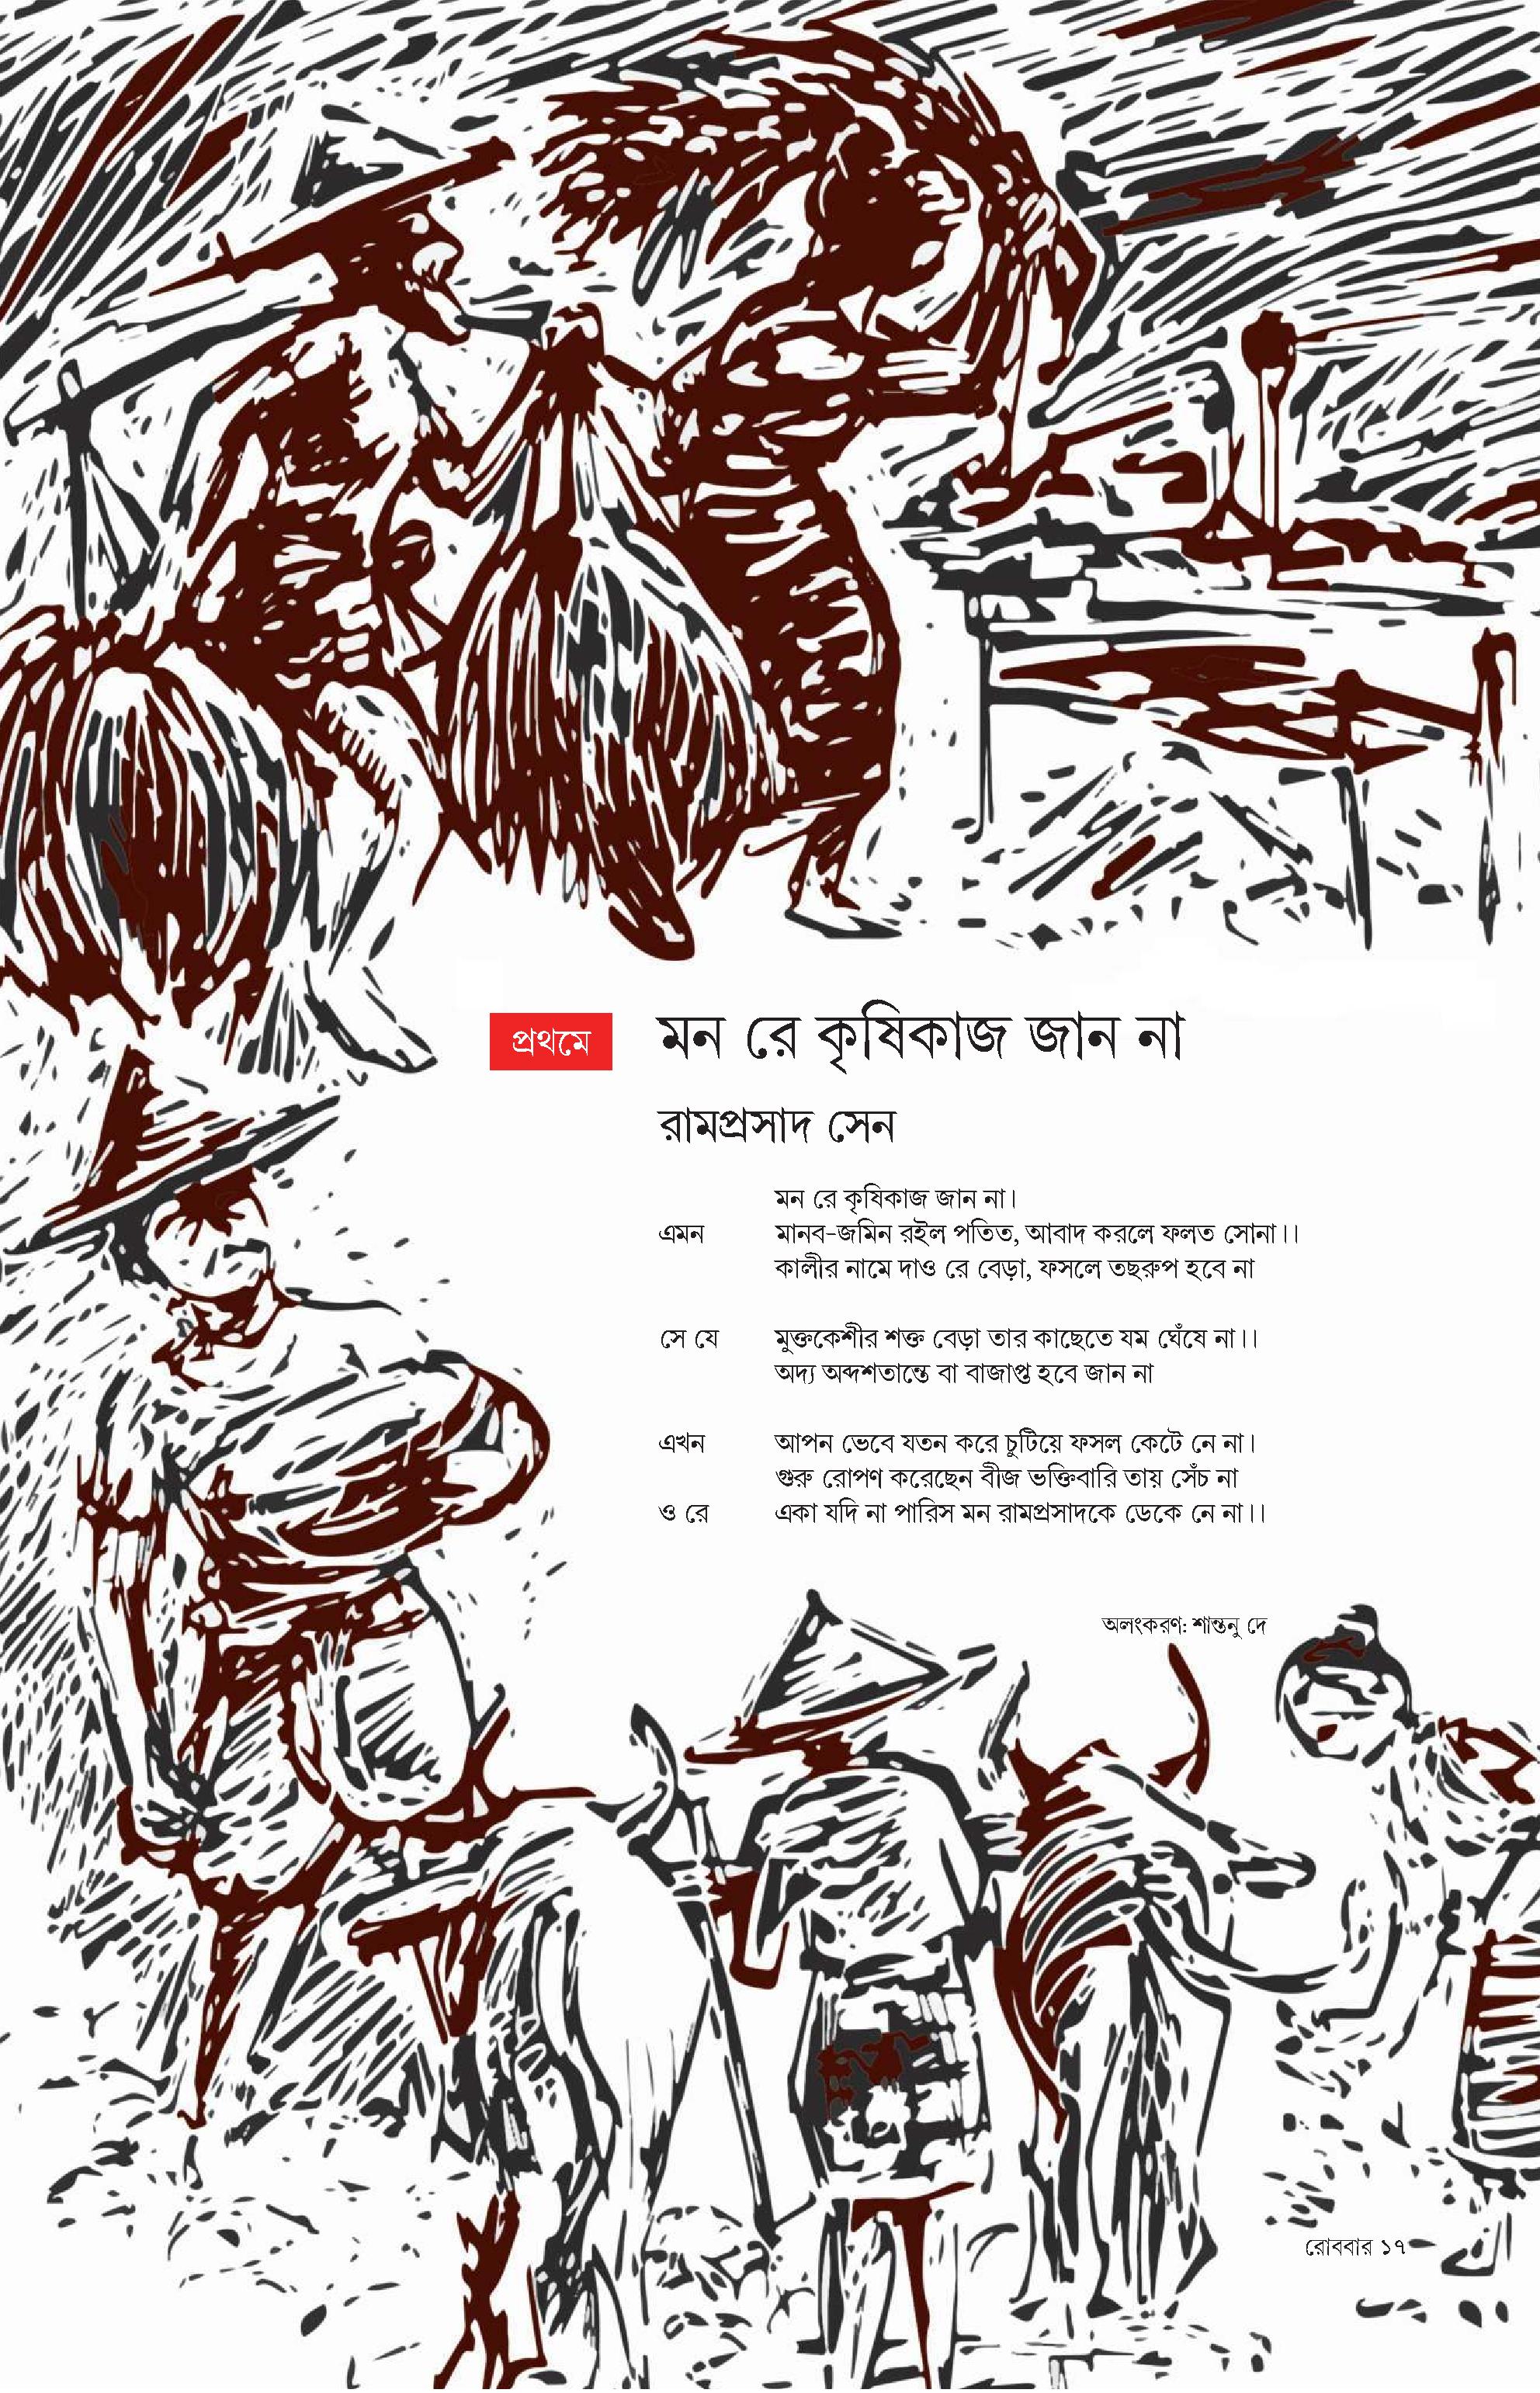 প্রথমে
মন রে কৃষিকাজ জান না
রামপ্রসাদ সেন
মন রে কৃষিকাজ জান না।
এমন মানব-জমিন রইল পতিত, আবাদ করলে ফলত সোনা।।
কালীর নামে দাও রে বেড়া, ফসলে তছরুপ হবে না
সে যে মুক্তকেশীর শক্ত বেড়া তার কাছেতে যম ঘেঁষে না।।
অদ্য অব্দশতান্তে বা বাজাপ্ত হবে জান না
এখন আপন ভেবে যতন করে চুটিয়ে ফসল কেটে নে না।
গুরু রোপণ করেছেন বীজ ভক্তিবারি তায় সেঁচ না
ও রে একা যদি না পারিস মন রামপ্রসাদকে ডেকে নে না।।
অলংকরণ: শান্তনু দে
রোববার ১৭